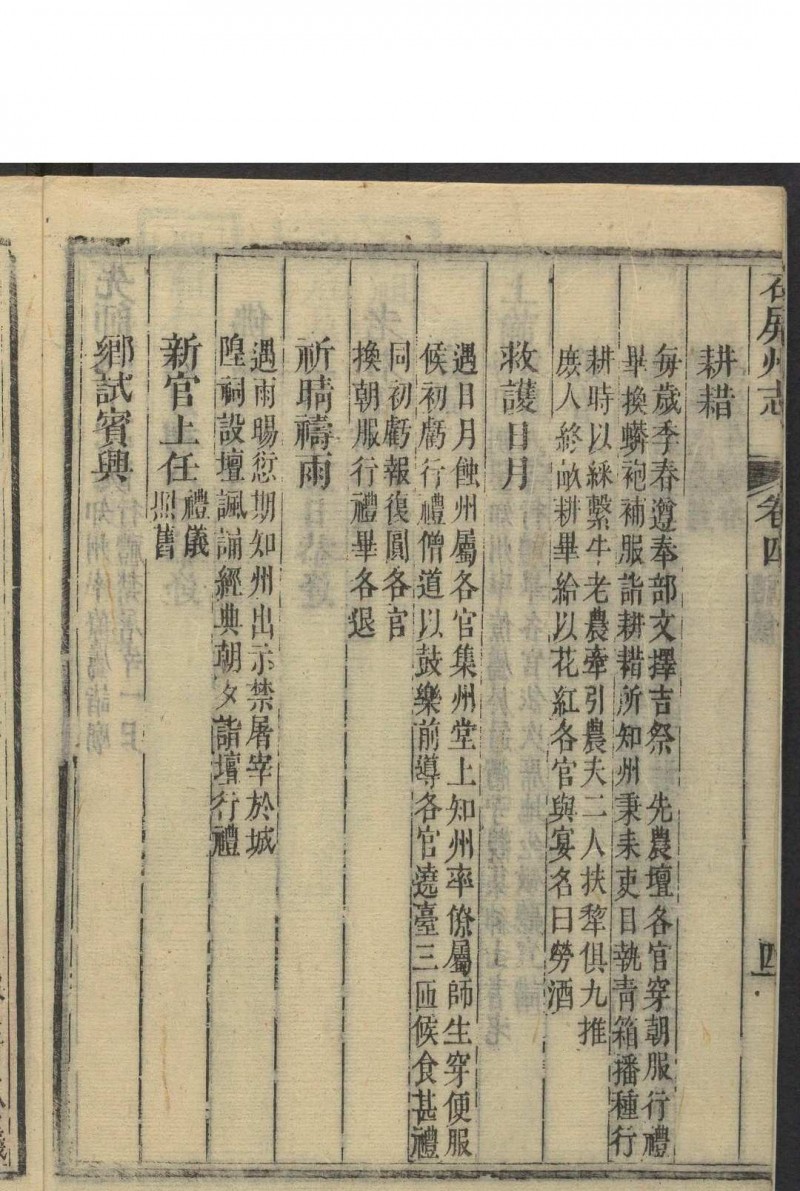 石屏州志 卷四 四
耕耤
每歲季春遵奉部文擇吉祭 先農壇各官穿朝服行禮
畢換蟒袍補服詣耕耤所知州秉耒吏目執青箱播種行
耕時以綵繫牛老農牽引農夫二人扶犂俱九推
庶人終畝耕畢給以花紅各官與宴名曰勞酒
救護日月
遇日月蝕州屬各官集州堂上知州率僚屬師生穿便服
候初虧行禮僧道以鼓樂前導各官遶臺三匝候食甚禮
同初虧報復圓各官
換朝服行禮畢各退
祈晴禱雨
遇雨暘愆期知州出示禁屠宰於城
隍祠設壇諷誦經典朝夕詣壇行禮
新官上任 禮儀
照舊
鄉試賓興